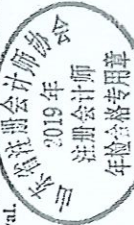 val.
山东省注册会计师协会
2019年
注册会计师
年检合格专用章